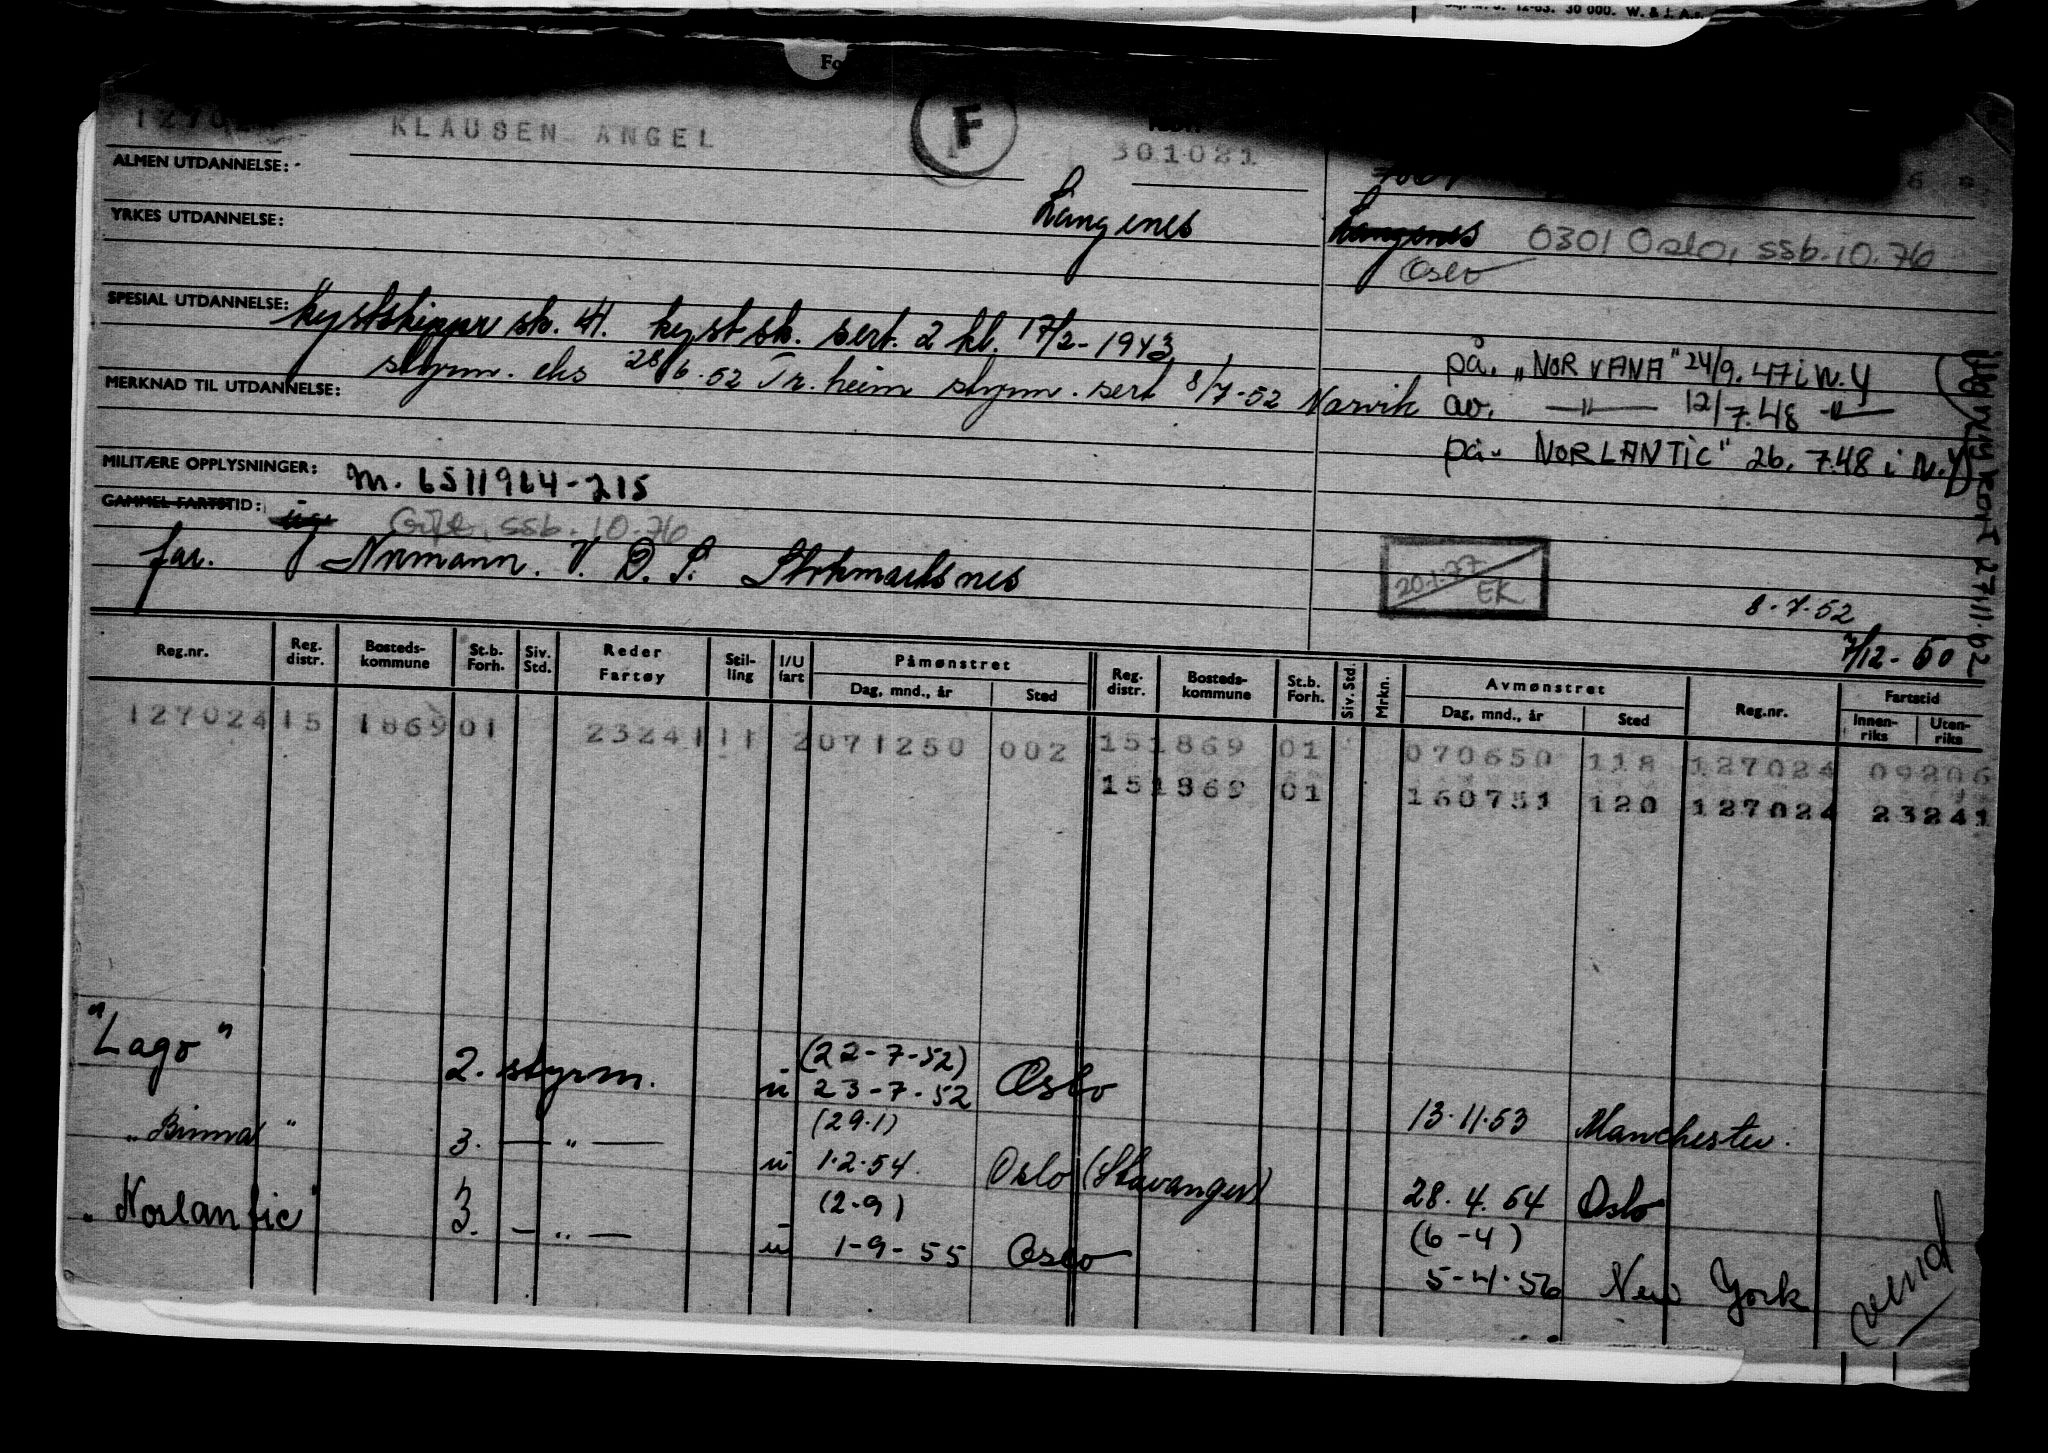 Fo
12-63. 30 000. W. & J. A.
KLAUSEN ANGEL
F
301021
ALMEN UTDANNELSE:
YRKES UTDANNELSE:
Langenes
Langenes 0301 Oslo, ssb. 10.76
Oslo
SPESIAL UTDANNELSE: kystskipper sk. 41. kystsk. sert. 2 kl. 17/2-1943
styrm. eks 28/6-52 Tr.heim styrm. sert 8/7-52 Narvik
MERKNAD TIL UTDANNELSE:
på. „NORVANA" 24/9.47 i N.Y
av. —"— 12/7.48 —"—
på. NORLANTIC" 26.7.48 i N.Y
MILITÆRE OPPLYSNINGER: M. 6511964-215
GAMMEL FARTSTID: ug. Gift, ssb. 10.76
far. Normann. V. D. S. Stokmarksnes
20.1.77 EK
8.7.52
7/12-50
Ny rk 27/11.62
Reg.nr. Reg. distr. Bosteds-kommune St.b. Forh. Siv. Std. Reder Fartøy Stil-ling I/U fart Påmønstret Dag, mnd., år Sted Reg. distr. Bosteds-kommune St.b. Forh. Siv. Std. Mrkn. Avmønstret Dag, mnd., år Sted Reg.nr. Fartstid Innen-riks Uten-riks
127024 15 1869 01 23241 11 2 071250 002 15 1869 01 070650 118 127024 09206
15 1869 01 160751 120 127024 23241
"Lago" 2. styrm. u (22-7-52) 23-7-52 Oslo 13.11.53 Manchester.
„Binna" 3. —"— u (29.1) 1.2.54. Oslo (Stavanger) 28.4.54 Oslo
„Norlantic" 3. —"— u (2-9) 1-9-55 Oslo (6-4) 5-4-56 New York
vend